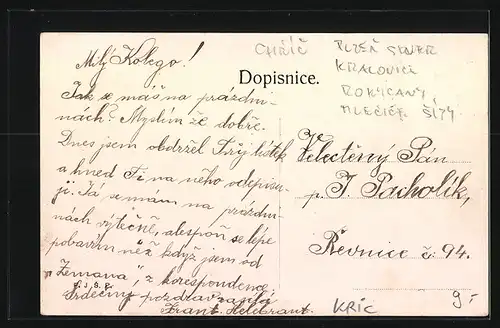 Milý Kolego!
Jak se máš na prázdni-
nách? Myslím že dobře.
Dnes jsem obdržel Tvůj lístek
a hned Ti na něho odepisu-
ji. Já se mám na prázdni-
nách výtečně, alespoň se lépe
pobavím než když jsem od
"Zemana", z korespondence.
Srdečný pozdrav zasílá
Frant.
CHŘÍČ
PLZEŇ SEVER
KRALOVICE
ROKYCANY
Dopisnice.
Velectěný Pán
p. J. Pacholík,
Řevnice č. 94.
KŘÍC
9.-